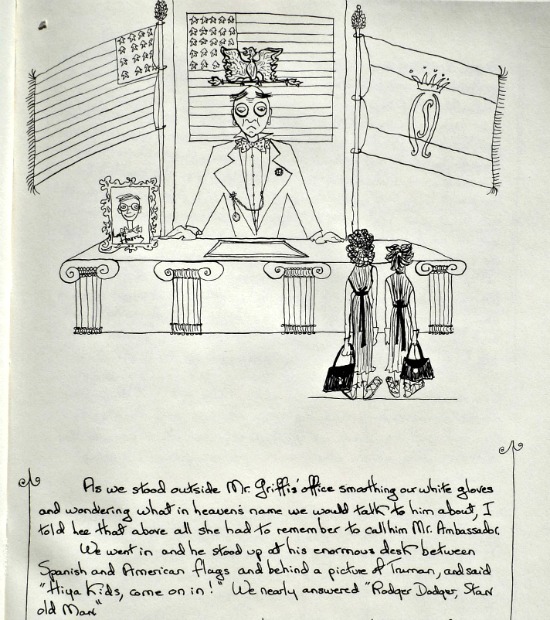 Love Harry
As we stood outside Mr. Griffis' office smoothing our white gloves
and wondering what in heaven's name we would talk to him about, I
told Lee that above all she had to remember to call him Mr. Ambassador.
We went in and he stood up at his enormous desk between
Spanish and American flags and behind a picture of Truman, and said
"Hiya Kids, come on in!" We nearly answered "Rodger Dodger, Stan
old Man"